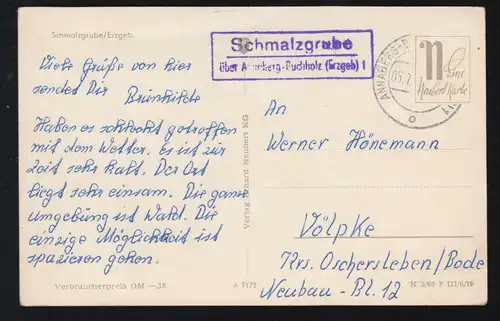 Schmalzgrube/Erzgeb.
Viele Grüße von hier
sendet Dir
Brünhilde
Haben es schlecht getroffen
mit dem Wetter. Es ist zur
Zeit sehr kalt. Der Ort
liegt sehr einsam. Die ganze
Umgebung ist Wald. Die
einzige Möglichkeit ist
spazieren gehen.
Verbraucherpreis DM —,15
Verlag Erhard Neubert KG
A 7172
Schmalzgrube
über Annaberg-Buchholz (Erzgeb) 1
ANNABERG-B
N
Eine
Neubert Karte
An
Werner Hönemann
Völpke
Krs. Oschersleben/Bode
Neubau-Bl. 12